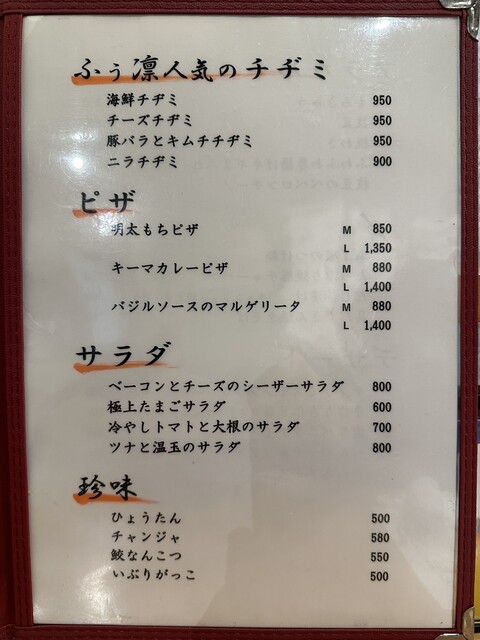 ふぅ凛人気のチヂミ
海鮮チヂミ 950
チーズチヂミ 950
豚バラとキムチチヂミ 950
ニラチヂミ 900
ピザ
明太もちピザ M 850
L 1,350
キーマカレーピザ M 880
L 1,400
バジルソースのマルゲリータ M 880
L 1,400
サラダ
ベーコンとチーズのシーザーサラダ 800
極上たまごサラダ 600
冷やしトマトと大根のサラダ 700
ツナと温玉のサラダ 800
珍味
ひょうたん 500
チャンジャ 580
鮫なんこつ 550
いぶりがっこ 500